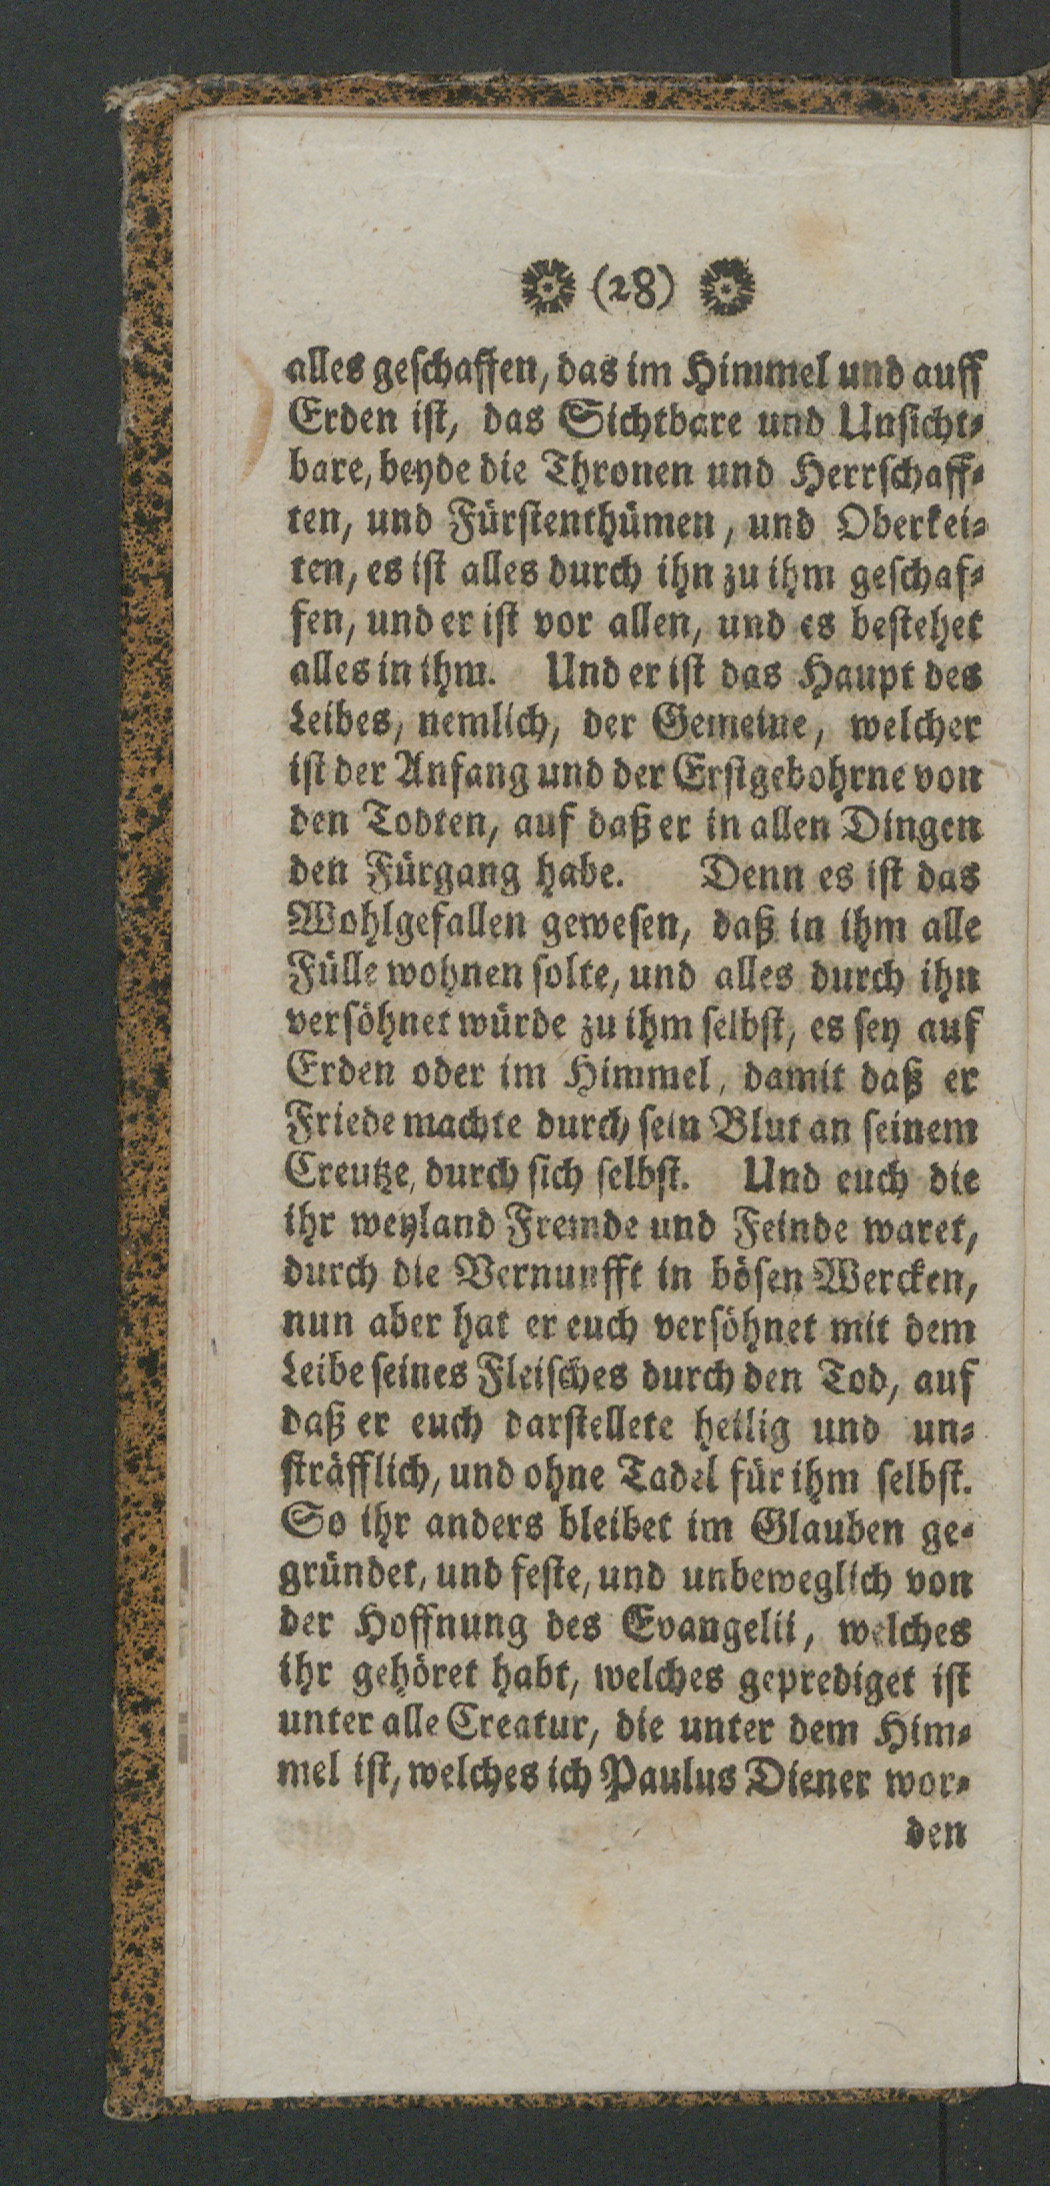 (28)
alles geschaffen, das im Himmel und auff
Erden ist, das Sichtbare und Unsicht⸗
bare, beyde die Thronen und Herrschaff⸗
ten, und Fürstenthümen, und Oberkei⸗
ten, es ist alles durch ihn zu ihm geschaf⸗
fen, und er ist vor allen, und es bestehet
alles in ihm. Und er ist das Haupt des
Leibes, nemlich, der Gemeine, welcher
ist der Anfang und der Erstgebohrne von
den Todten, auf daß er in allen Dingen
den Fürgang habe. Denn es ist das
Wohlgefallen gewesen, daß in ihm alle
Fülle wohnen solte, und alles durch ihn
versöhnet würde zu ihm selbst, es sey auf
Erden oder im Himmel, damit daß er
Friede machte durch sein Blut an seinem
Creutze, durch sich selbst. Und euch die
ihr weyland Fremde und Feinde waret,
durch die Vernunfft in bösen Wercken,
nun aber hat er euch versöhnet mit dem
Leibe seines Fleisches durch den Tod, auf
daß er euch darstellete heilig und un⸗
sträfflich, und ohne Tadel für ihm selbst.
So ihr anders bleibet im Glauben ge⸗
gründet, und feste, und unbeweglich von
der Hoffnung des Evangelii, welches
ihr gehöret habt, welches geprediget ist
unter alle Creatur, die unter dem Him⸗
mel ist, welches ich Paulus Diener wor⸗
den